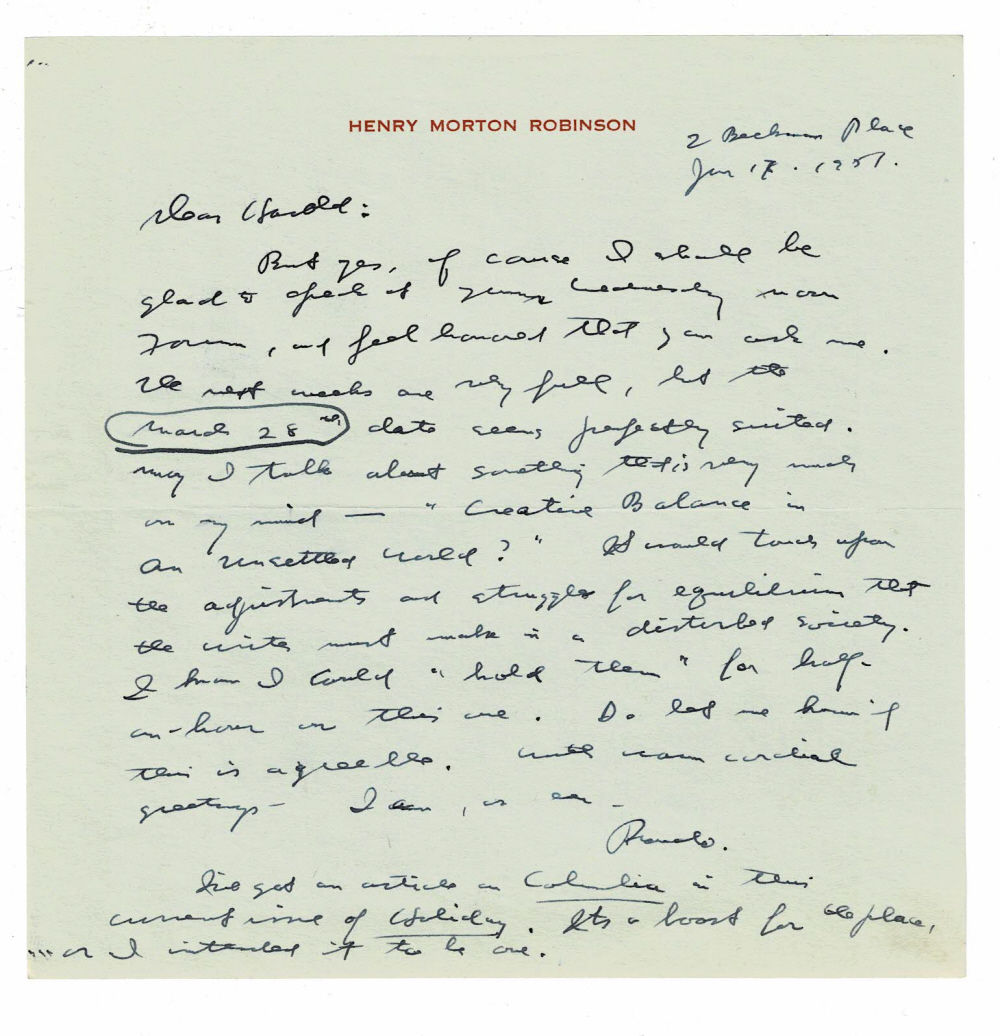 HENRY MORTON ROBINSON
2 Beekman Place
Jan 17. 1951.
Dear Harold:
But yes, of course I shall be
glad to speak at your Wednesday noon
Forum, and feel honored that you ask me.
The next weeks are very full, but the
March 28th, date seems perfectly suited.
May I talk about something that is very much
on my mind — "Creative Balance in
An Unsettled World?" It would touch upon
the adjustments and struggles for equilibrium that
the writer must make in a disturbed society.
I know I could "hold them" for half-
an-hour on this one. Do let me know if
this is agreeable. With warm cordial
greetings – I am, as ever –
I've got an article on Columbia in this
current issue of Holiday. Its a boost for the place,
... or I intended it to be one.